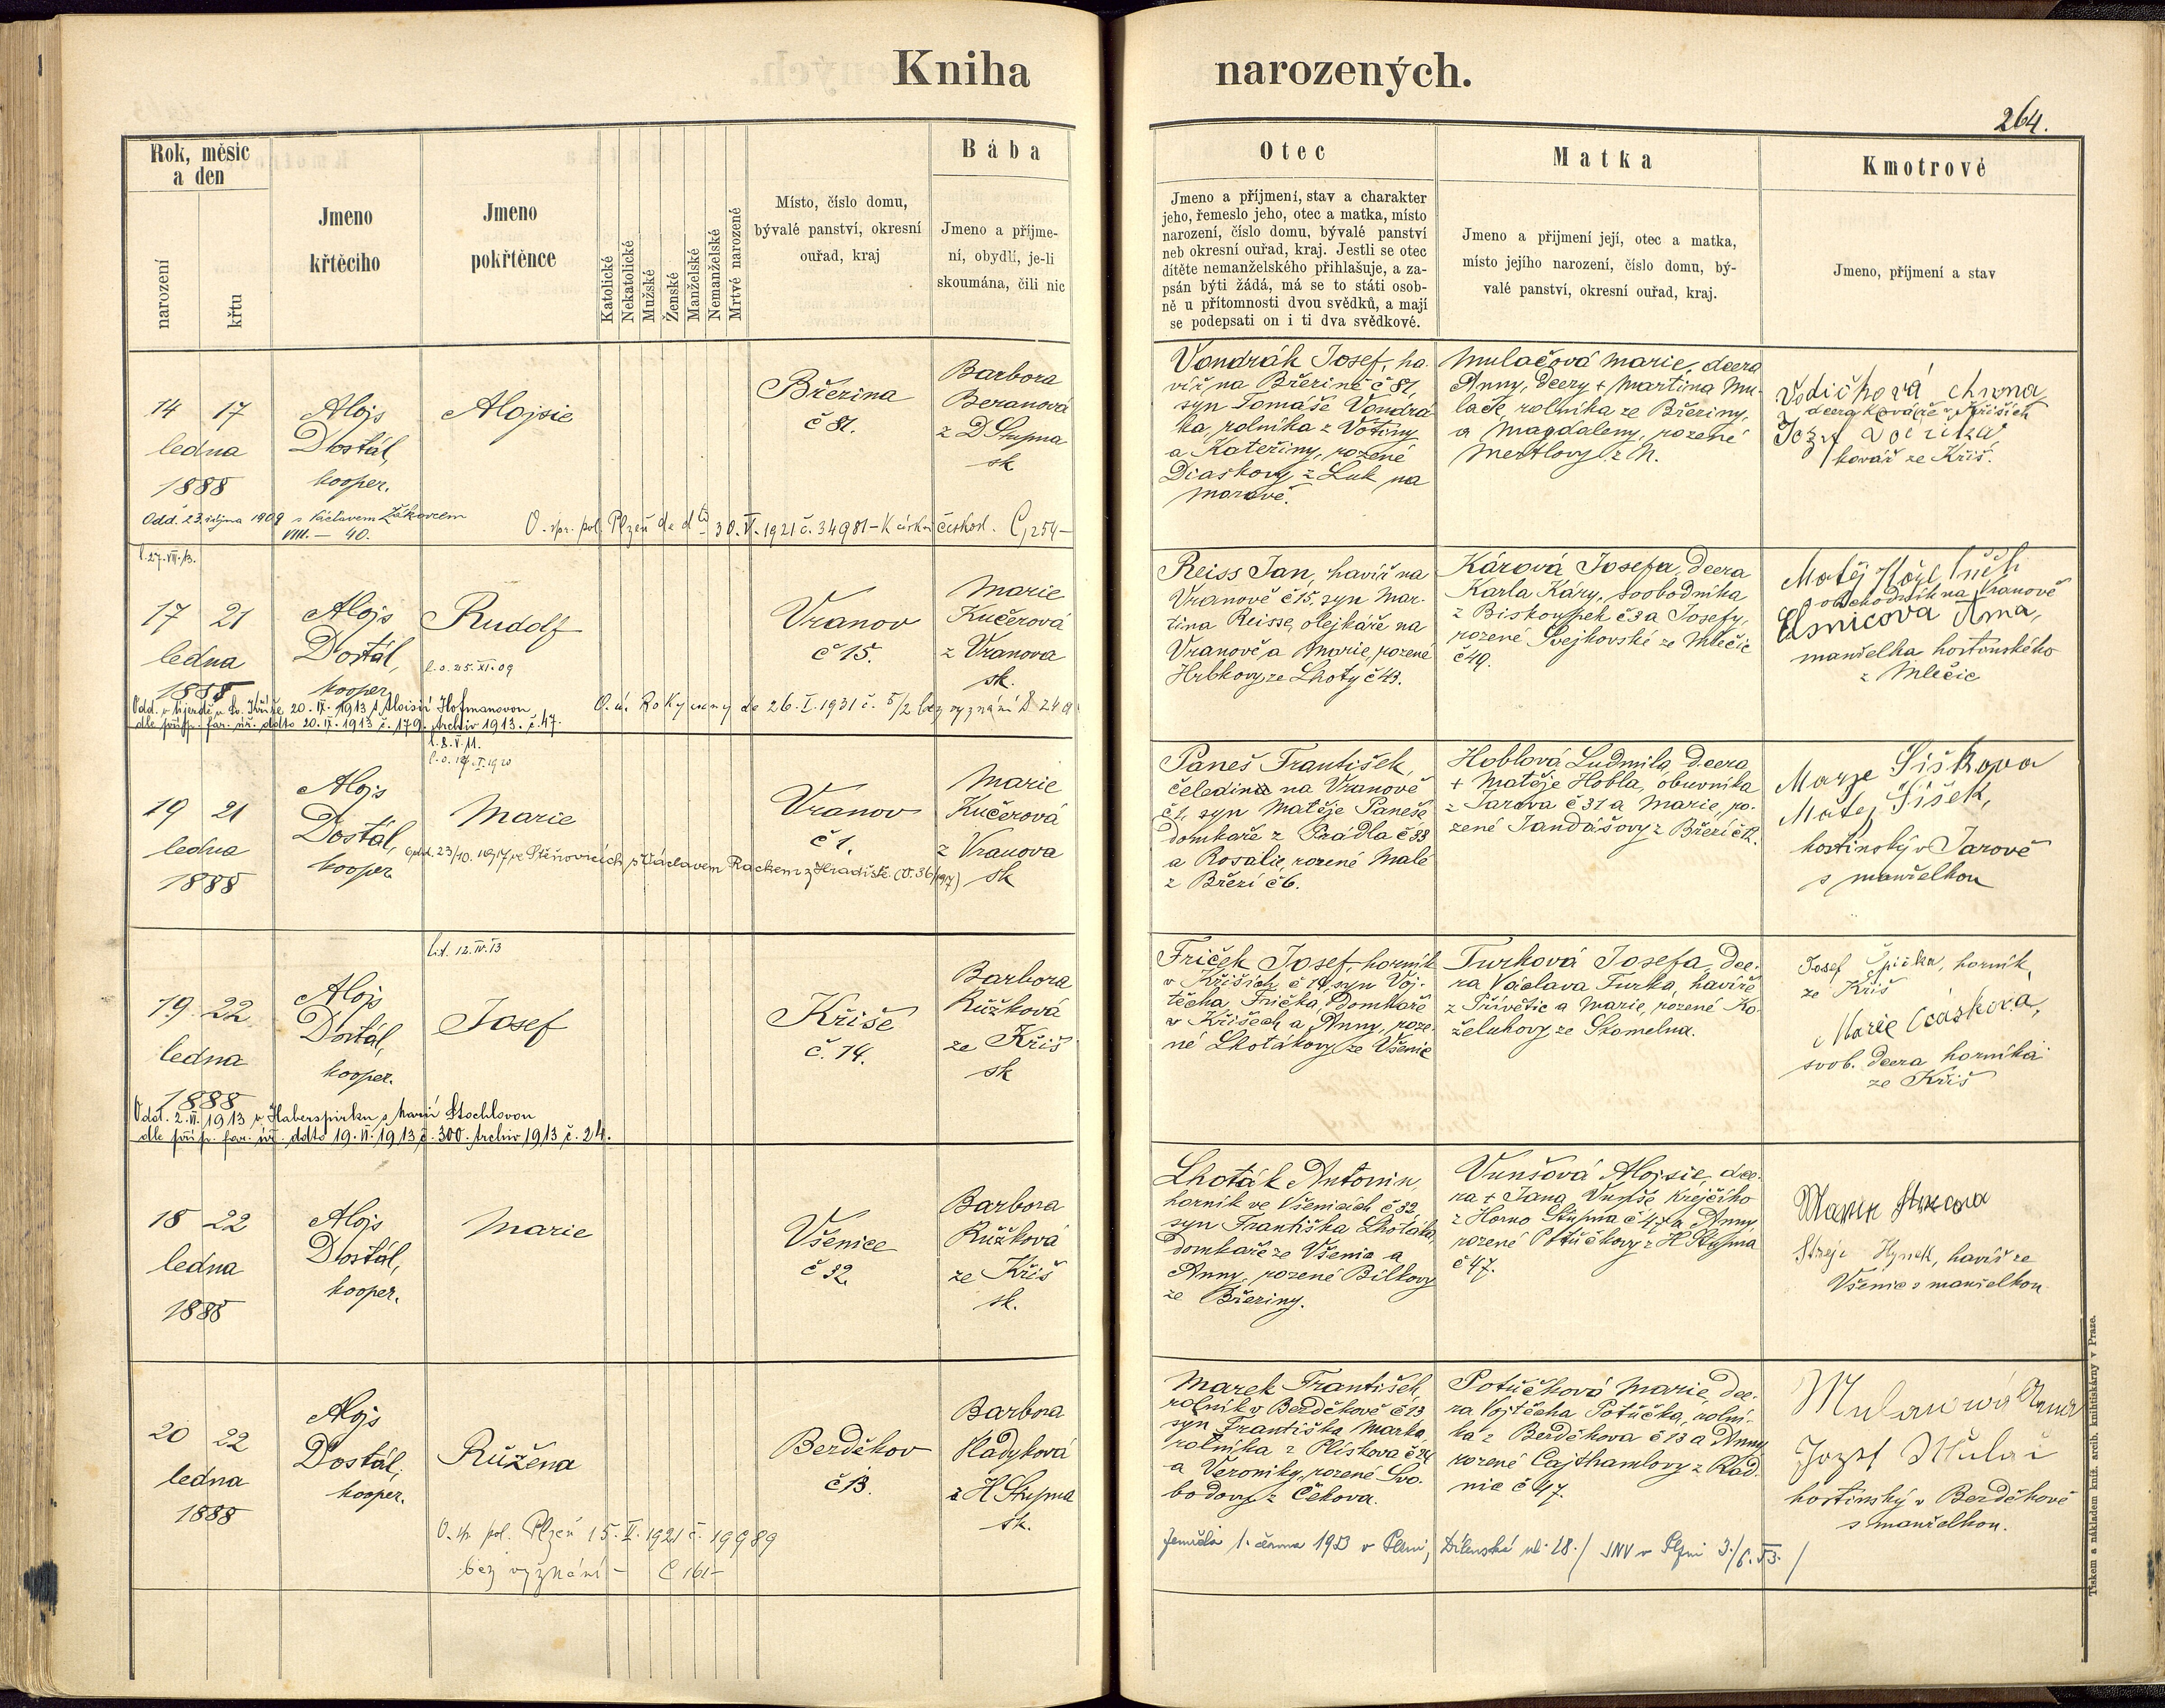 Kniha narozených.
264.
Rok, měsíc
a den
narození
křtu
Jmeno
křtěcího
Jmeno
pokřtěnce
Katolické
Nekatolické
Mužské
Ženské
Manželské
Nemanželské
Mrtvě narozené
Místo, číslo domu,
bývalé panství, okresní
ouřad, kraj
Bába
Jmeno a příjme-
ní, obydlí, je-li
skoumána, čili nic
Otec
Jmeno a příjmení, stav a charakter
jeho, řemeslo jeho, otec a matka, místo
narození, číslo domu, bývalé panství
neb okresní ouřad, kraj. Jestli se otec
dítěte nemanželského přihlašuje, a za-
psán býti žádá, má se to státi osob-
ně u přítomnosti dvou svědků, a mají
se podepsati on i ti dva svědkové.
Matka
Jmeno a přijmení její, otec a matka,
místo jejího narození, číslo domu, bý-
valé panství, okresní ouřad, kraj.
Kmotrové
Jmeno, příjmení a stav
14 17
ledna
1888
Alojs
Dostál,
kooper.
Alojsie
Březina
č 81.
Barbora
Beranová
z D Stupna
sk
Odd. 23. října 1909 s Václavem Žákovcem
VIII. — 40.
O. spr. pol. Plzeň de dto 30. V. 1921 č. 34981 – K církvi českosl. C, 254 –
Vondrák Josef, ha-
víř na Březině č 81,
syn Tomáše Vondrá-
ka, rolníka z Votiny
a Kateřiny, rozené
Diaskovy z Luk na
Moravě.
Mulačová Marie, dcera
Anny, dcery + Martina Mu-
lače, rolníka ze Březiny,
a Magdaleny, rozené
Mertlovy z N.
Vodičková
dcera kováře v Křiších
Jozef
kovář ze Kříš.
l. 27. VII. 13.
17 21
ledna
1888
Alojs
Dostál,
kooper.
Rudolf
l. o. 25. XI. 09
Vranov
č 15.
Marie
Kučerová
z Vranova
sk.
Odd. v Újezdě u Sv. Kříže 20. IX. 1913 s Aloisií Hofmanovou
dle příp. far. úř. ddto 20. IX. 1913 č. 179. Archiv 1913. č. 47.
O. ú. Rokycany de 26. I. 1931 č. 5/2 bez vyznání D 249
Reiss Jan, havíř na
Vranově č 15, syn Mar-
tina Reisse, olejkáře na
Vranově a Marie, rozené
Hrbkovy, ze Lhoty č 43.
Kárová Josefa, dcera
Karla Káry, svobodníka
z Biskoupek č 3 a Josefy,
rozené Svejkovské ze Mlečic
č 49.
Matěj
obchodník na Vranově
Elsnicova Anna,
manželka hostinského
z Mlečic
l. 8. V. 11.
19 21
ledna
1888
Alojs
Dostál,
kooper.
Marie
Vranov
č 1.
Marie
Kučerová
z Vranova
sk
odd. 23/10. 1917 ve Štěnovicích s Václavem Rackem z Hradiště (V. 36/1917)
Paneš František,
čeledín na Vranově
č 1, syn Matěje Paneše,
domkaře z Prádla č 38
a Rosalie, rozené Malé
z Březí č 6.
Hoblová Ludmila, dcera
+ Matěje Hobla, obuvníka
z Jarova č 31 a Marie, ro-
zené Jandášovy z Březí č 12.
Marye Šiškova
Matej Šišek,
hostinský v Jarově
s manželkou
Lit. 12. IV. 13
19 22
ledna
1888
Alojs
Dostál,
kooper.
Josef
Kříše
č. 14.
Barbora
Růžková
ze Kříš
sk
Odd. 2. VI. 1913 v Haberspirku s Marií Stochlovou
dle příp. far. úř. ddto 19. VI. 1913 č. 300. Archiv 1913 č. 24.
Friček Josef, horník
v Křiších č 14, syn Voj-
těcha Frička, domkaře
v Křišech a Anny, roze-
né Lhotákovy ze Všenic
Turková Josefa, dce-
ra Václava Turka, havíře
z Přívětic a Marie, rozené Ko-
želuhovy ze Skomelna.
Josef Špička, horník,
ze Kříš
Marie Cáskova,
svob. dcera horníka
ze Kříš
18 22
ledna
1888
Alojs
Dostál,
kooper.
Marie
Všenice
č 32.
Barbora
Růžková
ze Kříš
sk.
Lhoták Antonín
horník ve Všenicích č 32
syn Františka Lhotáka,
domkaře ze Všenic a
Anny, rozené Bílkovy
ze Březiny.
Vunšová Alojsie, dce-
ra + Jana Vunše, krejčího
z Horno Stupna č 47 a Anny,
rozené Potůčkovy z H Stupna
č 47.
Hynek, havíř ze
Všenic s manželkou
20 22
ledna
1888
Alojs
Dostál,
kooper.
Růžena
Berděkov
č 13.
Barbora
Hladyková
z H Stupna
sk.
O. sp. pol. Plzeň 15. II. 1921 č. 19989
bez vyznání – C 161 –
Marek František
rolník v Berděkově č 13
syn Františka Marka,
rolníka z Plískova č 24
a Veroniky, rozené Svo-
bodovy z Čekova.
Potůčková Marie, dce-
ra Vojtěcha Potůčka, rolní-
ka z Berděkova č 13 a Anny
rozené Cajthamlovy z Rad-
nic č 47.
Mulačová Anna
Jozef Mulač
hostinský v Berděkově
s manželkou.
Zemřela 1. června 1953 v Plzni, Dílenská ul. 28. / JNV v Plzni 3./6. 53. /
Tiskem a nákladem kníž. arcib. knihtiskárny v Praze.